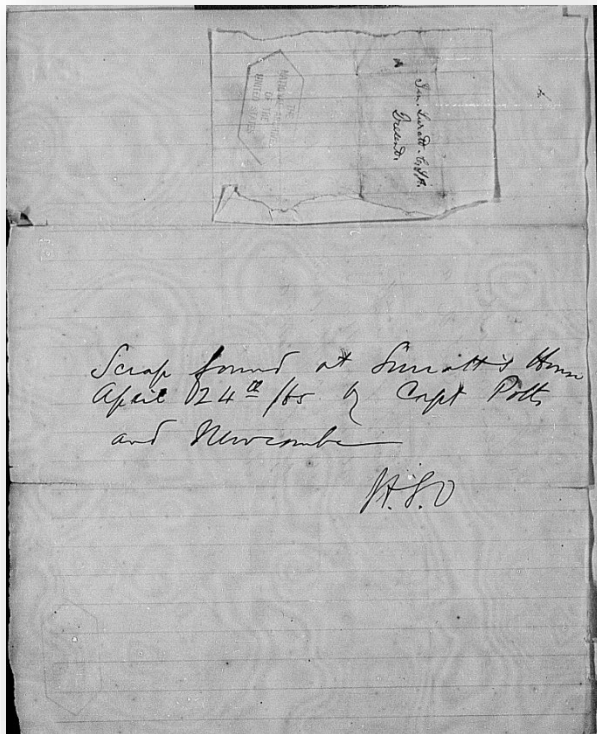 Jno. Suratt. Esqr.
Present.
Scrap found at Surratt's House
April 24th /65 by Capt Potts
and Newcombe
H.S.O